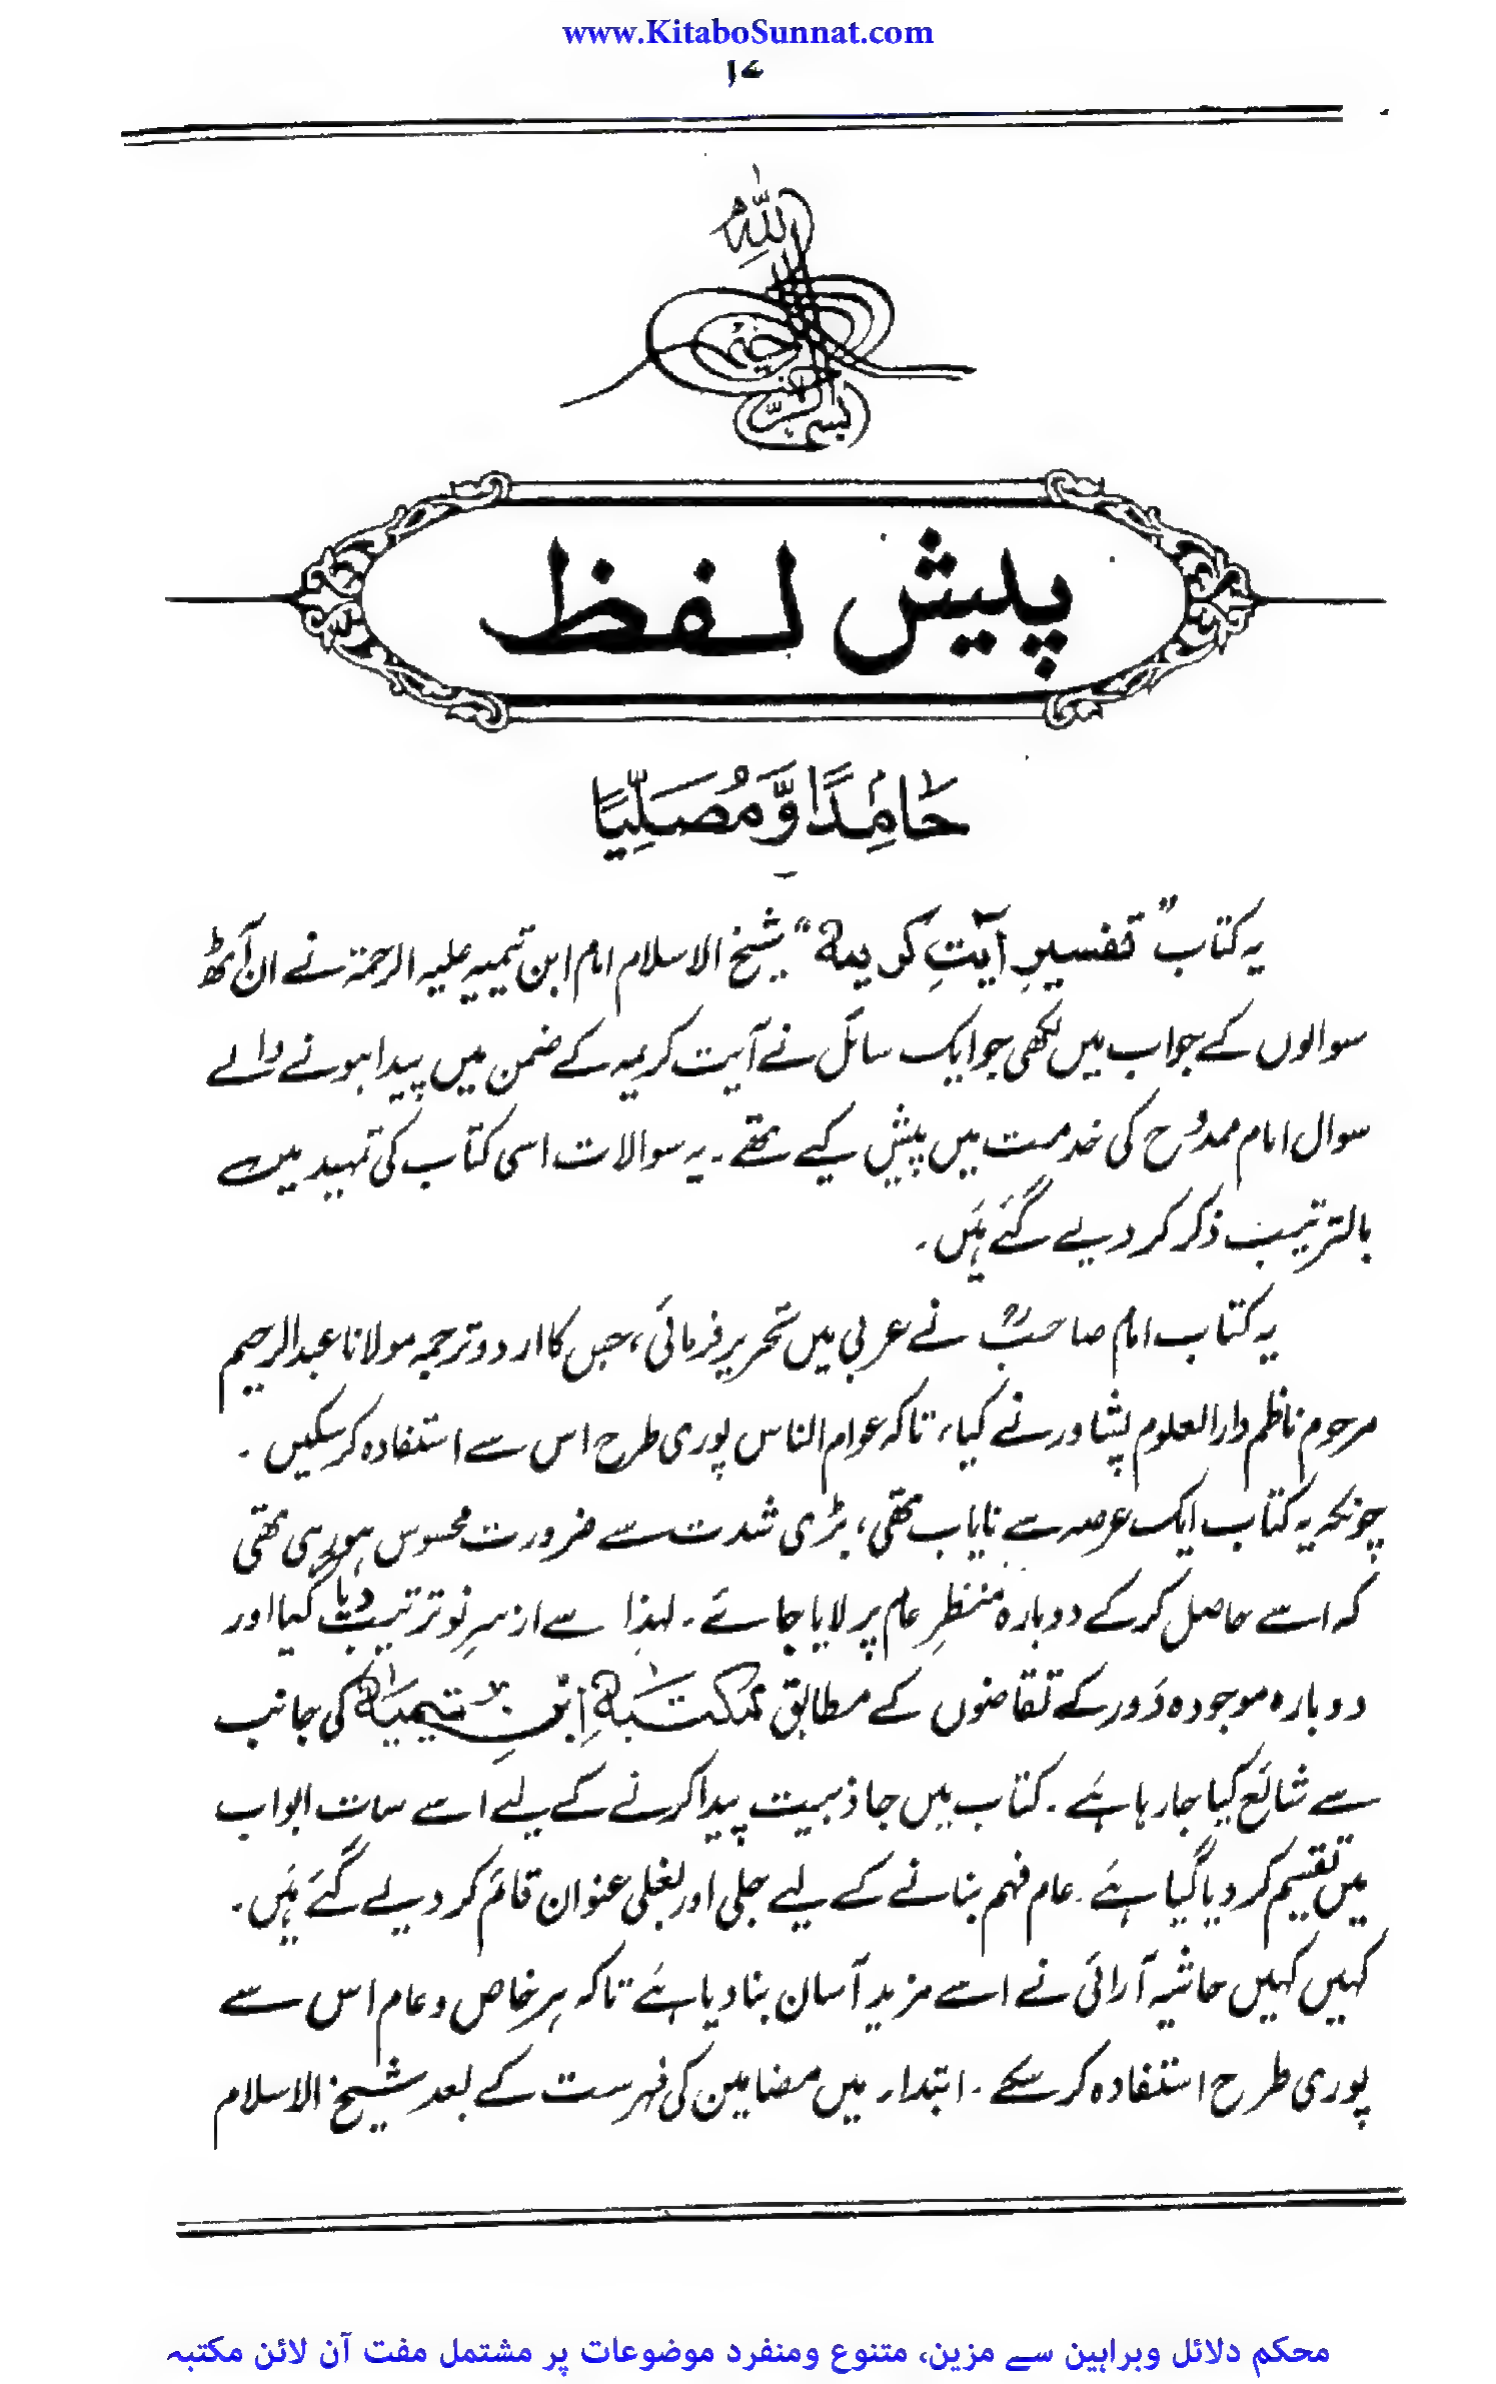 www.KitaboSunnat.com
۱۷
بسم اللہ الرحمن الرحیم
پیش لفظ
حَامِدًا وَّمُصَلِّیًا
یہ کتاب "تفسیرِ آیتِ کریمہ" شیخ الاسلام امام ابن تیمیہ علیہ الرحمۃ نے ان آٹھ
سوالوں کے جواب میں لکھی جو ایک سائل نے آیت کریمہ کے ضمن میں پیدا ہونے والے
سوال امام ممدوح کی خدمت میں پیش کیے تھے۔ یہ سوالات اسی کتاب کی تمہید میں
بالترتیب ذکر کر دیے گئے ہیں۔
یہ کتاب امام صاحبؒ نے عربی میں تحریر فرمائی، جس کا اردو ترجمہ مولانا عبدالرحیم
مرحوم ناظم دارالعلوم پشاور نے کیا، تاکہ عوام الناس پوری طرح اس سے استفادہ کر سکیں۔
چونکہ یہ کتاب ایک عرصہ سے نایاب تھی، بڑی شدت سے ضرورت محسوس ہو رہی تھی
کہ اسے حاصل کر کے دوبارہ منظرِ عام پر لایا جائے۔ لہذا سے از سرِ نو ترتیب دیا گیا اور
دوبارہ موجودہ دَور کے تقاضوں کے مطابق مکتبہ ابنِ تیمیہ کی جانب
سے شائع کیا جا رہا ہے۔ کتاب میں جاذبیت پیدا کرنے کے لیے اسے سات ابواب
میں تقسیم کر دیا گیا ہے۔ عام فہم بنانے کے لیے جلی اور بغلی عنوان قائم کر دیے گئے ہیں۔
کہیں کہیں حاشیہ آرائی نے اسے مزید آسان بنا دیا ہے تاکہ ہر خاص و عام اس سے
پوری طرح استفادہ کر سکے۔ ابتداء میں مضامین کی فہرست کے بعد شیخ الاسلام
محکم دلائل وبراہین سے مزین، متنوع ومنفرد موضوعات پر مشتمل مفت آن لائن مکتبہ